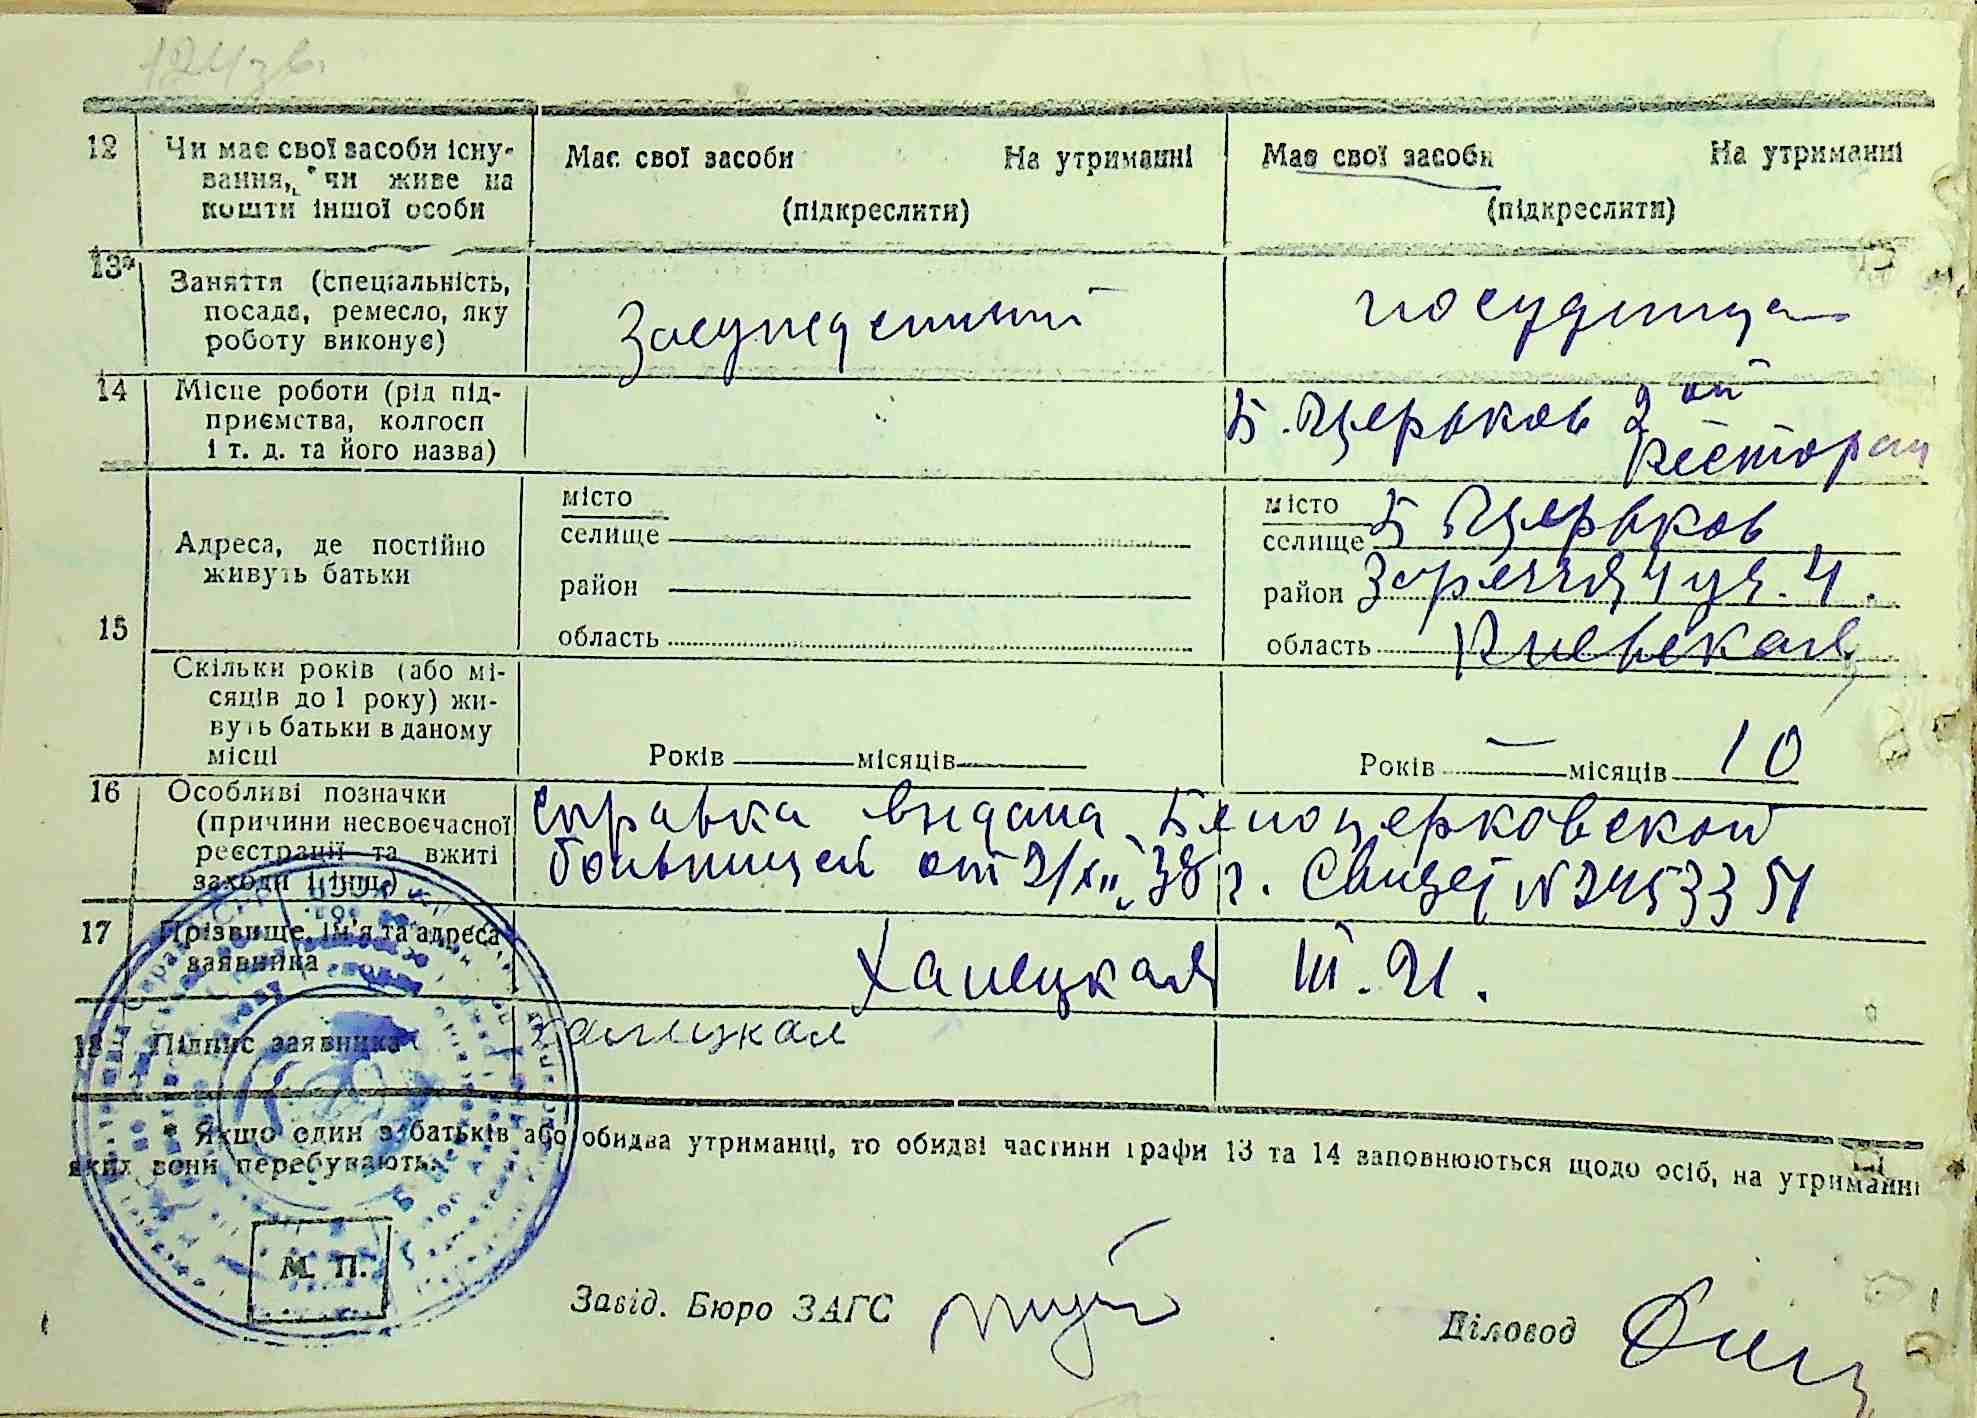 124зв.
12 Чи має свої засоби існу-
вання, чи живе на
кошти іншої особи
Має свої засоби На утриманні
(підкреслити)
Має свої засоби На утриманні
(підкреслити)
13* Заняття (спеціальність,
посада, ремесло, яку
роботу виконує)
Засужденный
посудница
14 Місце роботи (рід під-
приємства, колгосп
і т. д. та його назва)
Б. Церьков 2ой
ресторан
15
Адреса, де постійно
живуть батьки
місто
селище
район
область
місто
селище Б Церьков
район Заречья 4 уч. 4.
область Киевская
Скільки років (або мі-
сяців до 1 року) жи-
вуть батьки в даному
місці
Років місяців
Років — місяців 10
16 Особливі позначки
(причини несвоєчасної
реєстрації та вжиті
заходи і інш.)
справка выдана Белоцерковской
больницей от 2/XII 38 г. Свидет N 2453351
17 Прізвище, ім'я та адреса
заявника
Ханецкая Т. И.
18 Підпис заявника
Ханецкая
* Якщо один з батьків або обидва утриманці, то обидві частини графи 13 та 14 заповнюються щодо осіб, на утриманні
яких вони перебувають.
М. П.
Завід. Бюро ЗАГС
Діловод